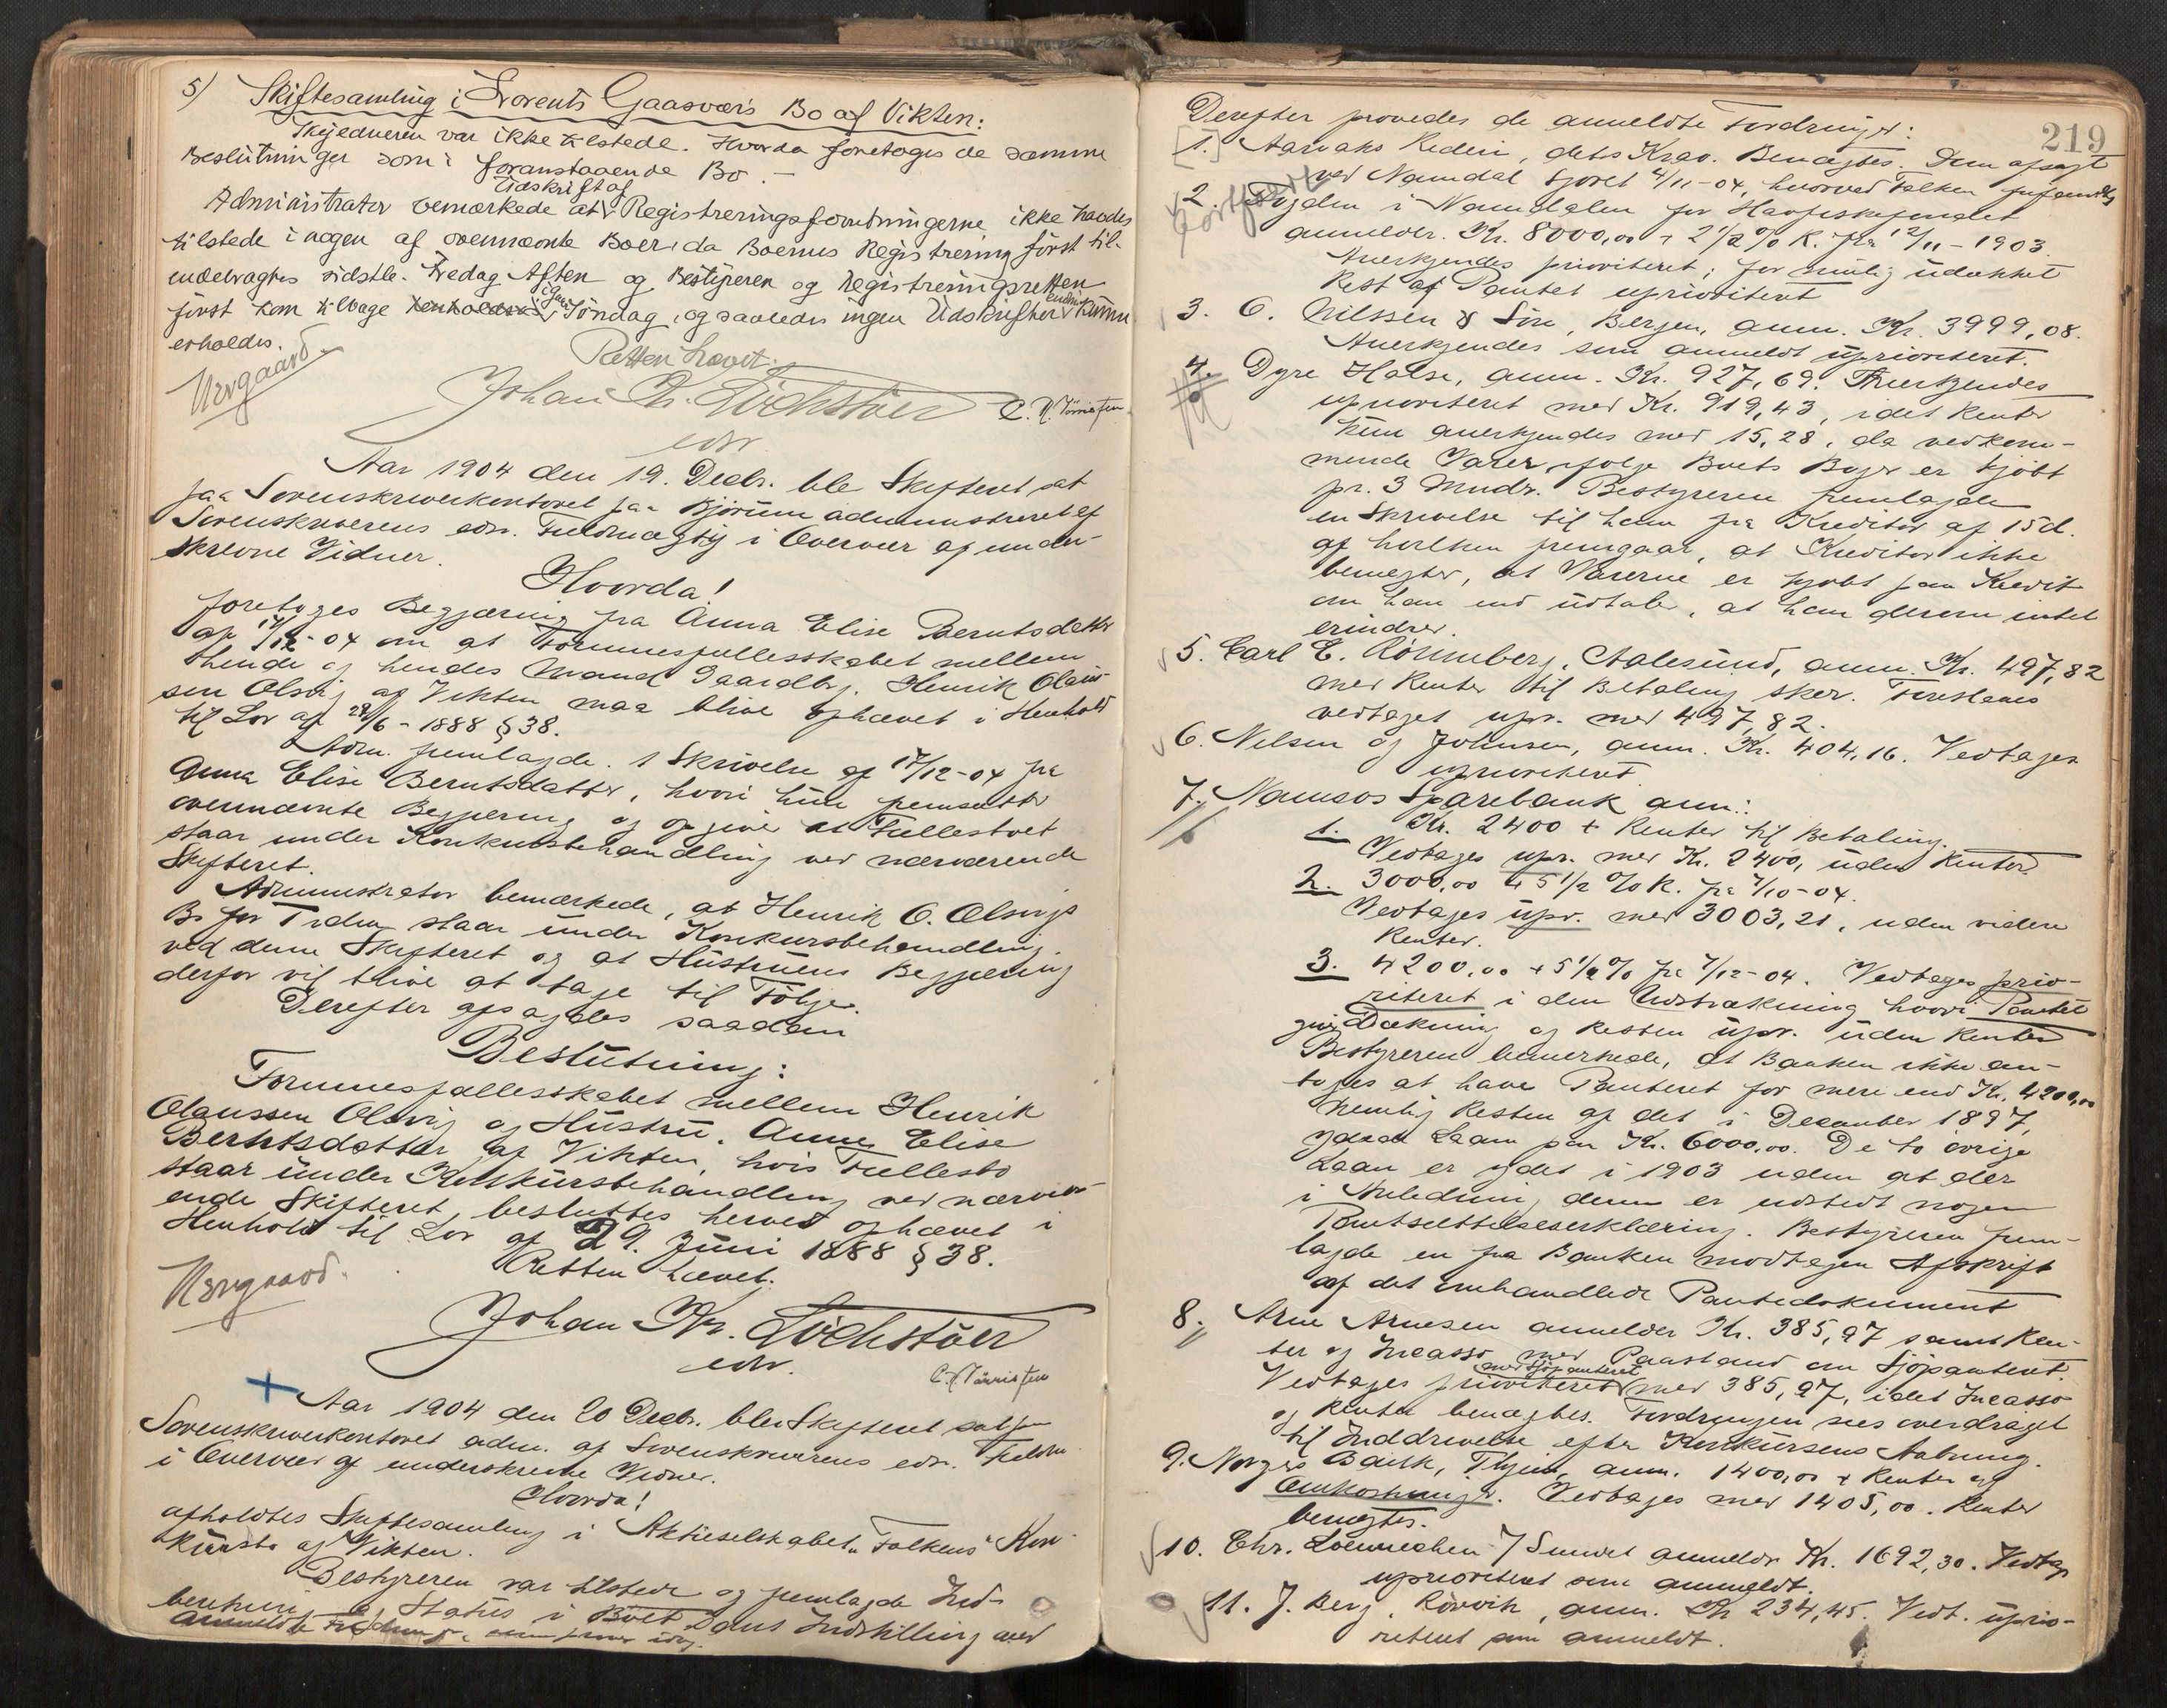 5) Skiftesamling i Lorents Gaasvær's Bo af Vikten:
Skyldneren var ikke tilstede. Hvorda foretoges de samme
Beslutninger som i foranstaaende Bo.-
Administrator bemærkede at Udskrift af Registreringsforretningerne ikke havdes
tilstede i nogen af ovennævnte Boer, da Boernes Registrering först til-
endebragtes sidstl. Fredag Aften og Bestyreren og Registreringsretten
först kom tilbage igaar Söndag, og saaledes ingen Udskrifter endnu kunne
erholdes.
Retten hævet.
Nergaard.
Johan Kr. Löchstöer
edv.
Aar 1904 den 19. Decbr. ble Skifteret sat
paa Sorenskriverkontoret paa Björum administreret af
Sorenskriverens edsv. Fuldmægtig i Overvær af under-
skrevne Vidner.
Hvorda!
foretoges Begjæring fra Anna Elise Berntsdatter
af 17/12-04 om at Formuesfællesskabet mellem
hende og hendes Mand Gaardbr. Henrik Olaus-
sen Olsvig af Vikten maa blive ophævet i Henhold
til Lov af 29/6-1888 § 38.
Adm. fremlagde. 1 Skrivelse af 17/12-04 fra
Anna Elise Berntsdatter, hvori hun fremsætter
ovennævnte Begjæring og opgiver at Fællesboet
staar under Konkursbehandling ved nærværende
Skifteret.
Administrator bemærkede, at Henrik O. Olsvigs
Bo for Tiden staar under Konkursbehandling
ved denne Skifteret og at Hustruens Begjæring
derfor vil blive at tage til Fölge.
Derefter afsagdes saadan
Beslutning:
Formuesfællesskabet mellem Henrik
Olaussen Olsvig og Hustru, Anna Elise
Berntsdatter af Vikten, hvis Fællesbo
staar under Konkursbehandling ved nærvær-
ende Skifteret, besluttes herved ophævet i
Henhold til Lov af 29. Juni 1888 § 38.
Retten hævet.
Nergaard.
Johan Kr. Löchstöer
edv.
Aar 1904 den 20 Decbr. blev Skifteret sat paa
Sorenskriverkontoret adm. af Sorenskriverens edsv. Fuldm.
i Overvær af underskrevne Vidner.
Hvorda!
afholdtes Skiftesamling i Aktieselskabet "Falkens" Kon-
kursbo af Vikten.
Bestyreren var tilstede og fremlagde Ind-
beretning og Status i Boet Dans Indstilling over
anmeldte Fordringer
219
Derefter prøvedes de anmeldte Fordringer:
1. Aarvaks Rederi, dets Krav. Benægtes. Dom afsagt
ved Namdal Sjøret 4/11-04, hvorved Falken
2. i Namdalen for Havfiskefondet
anmelder. Kr. 8000,00 + 2 1/2 % R. fra 12/11-1903.
Anerkjendes prioriteret; for mulig udækket
Rest af Pantet uprioritert
3. O. Nilssen & Sön, Bergen, anm. Kr. 3999,08.
Anerkjendes som anmeldt uprioriteret.
4. Dyre Halse, anm. Kr. 927,69. Anerkjendes
uprioriteret med Kr. 919,43, idet Renter
kun anerkjendes med 15,28, da vedkom-
mende Varer ifølge Boets Bøger er kjöbt
pr. 3 Mndr. Bestyreren fremlagde
en Skrivelse til ham fra Kreditor af 15 d.
af hvilken fremgaar, at Kreditor ikke
benægter, at Varerne er kjøbt paa Kredit
om han end udtaler, at han derom intet
erindrer.
5. Carl E. Rönneberg, Aalesund, anm. Kr. 497,82
med Renter til Betaling sker. Forestaaes
vedtaget upr. med 497,82.
6. Nilsen og Johnsen, anm. Kr. 404,16. Vedtages
uprioriteret
7. Namsos Sparebank anm.:
1. Kr. 2400 + Renter til Betaling.
Vedtages upr. med Kr. 2400, uden Renter
2. 3000,00 + 5 1/2 % R. fra 7/10-04.
Vedtages upr. med 3003,21, uden videre
Renter.
3. 4200,00 + 5 1/2 % fra 7/12-04. Vedtages prio-
riteret i den Udstrækning hvori Pantet
giver Dækning og Resten upr. uden Renter
Bestyreren bemerkede, at Banken ikke an-
toges at have Panteret for mere end Kr. 4200,00
nemlig Resten af det i December 1897,
ydede Laan paa Kr. 6000,00. De to övrige
Laan er ydet i 1903 uden at der
i Anledning denne er udstedt nogen
Pantsættelseserklæring. Bestyreren frem-
lagde en fra Banken modtagen Afskrift
af det omhandlede Pantedokument
8. Arne Arnesen anmelder Kr. 385,97 samt Ren-
ter og Incasso med Paastand om Sjöpanteret.
Vedtages prioriteret med Sjöpanteret med 385,97, idet Incasso
og Renter benægtes. Fordringen sees overdraget
til Inddrivelse efter Konkursens Aabning.
9. Norges Bank, Thjem, anm. 1400,00 + Renter og
Omkostninger. Vedtages med 1405,00. Renter
benegtes.
10. Chr. Loennechen / Sundet anmelder Kr. 1692,30. Vedtages
uprioritert som anmeldt.
11. J. Berg, Rörvik, anm. Kr 234,45. Vedt. uprio-
ritert som anmeldt.